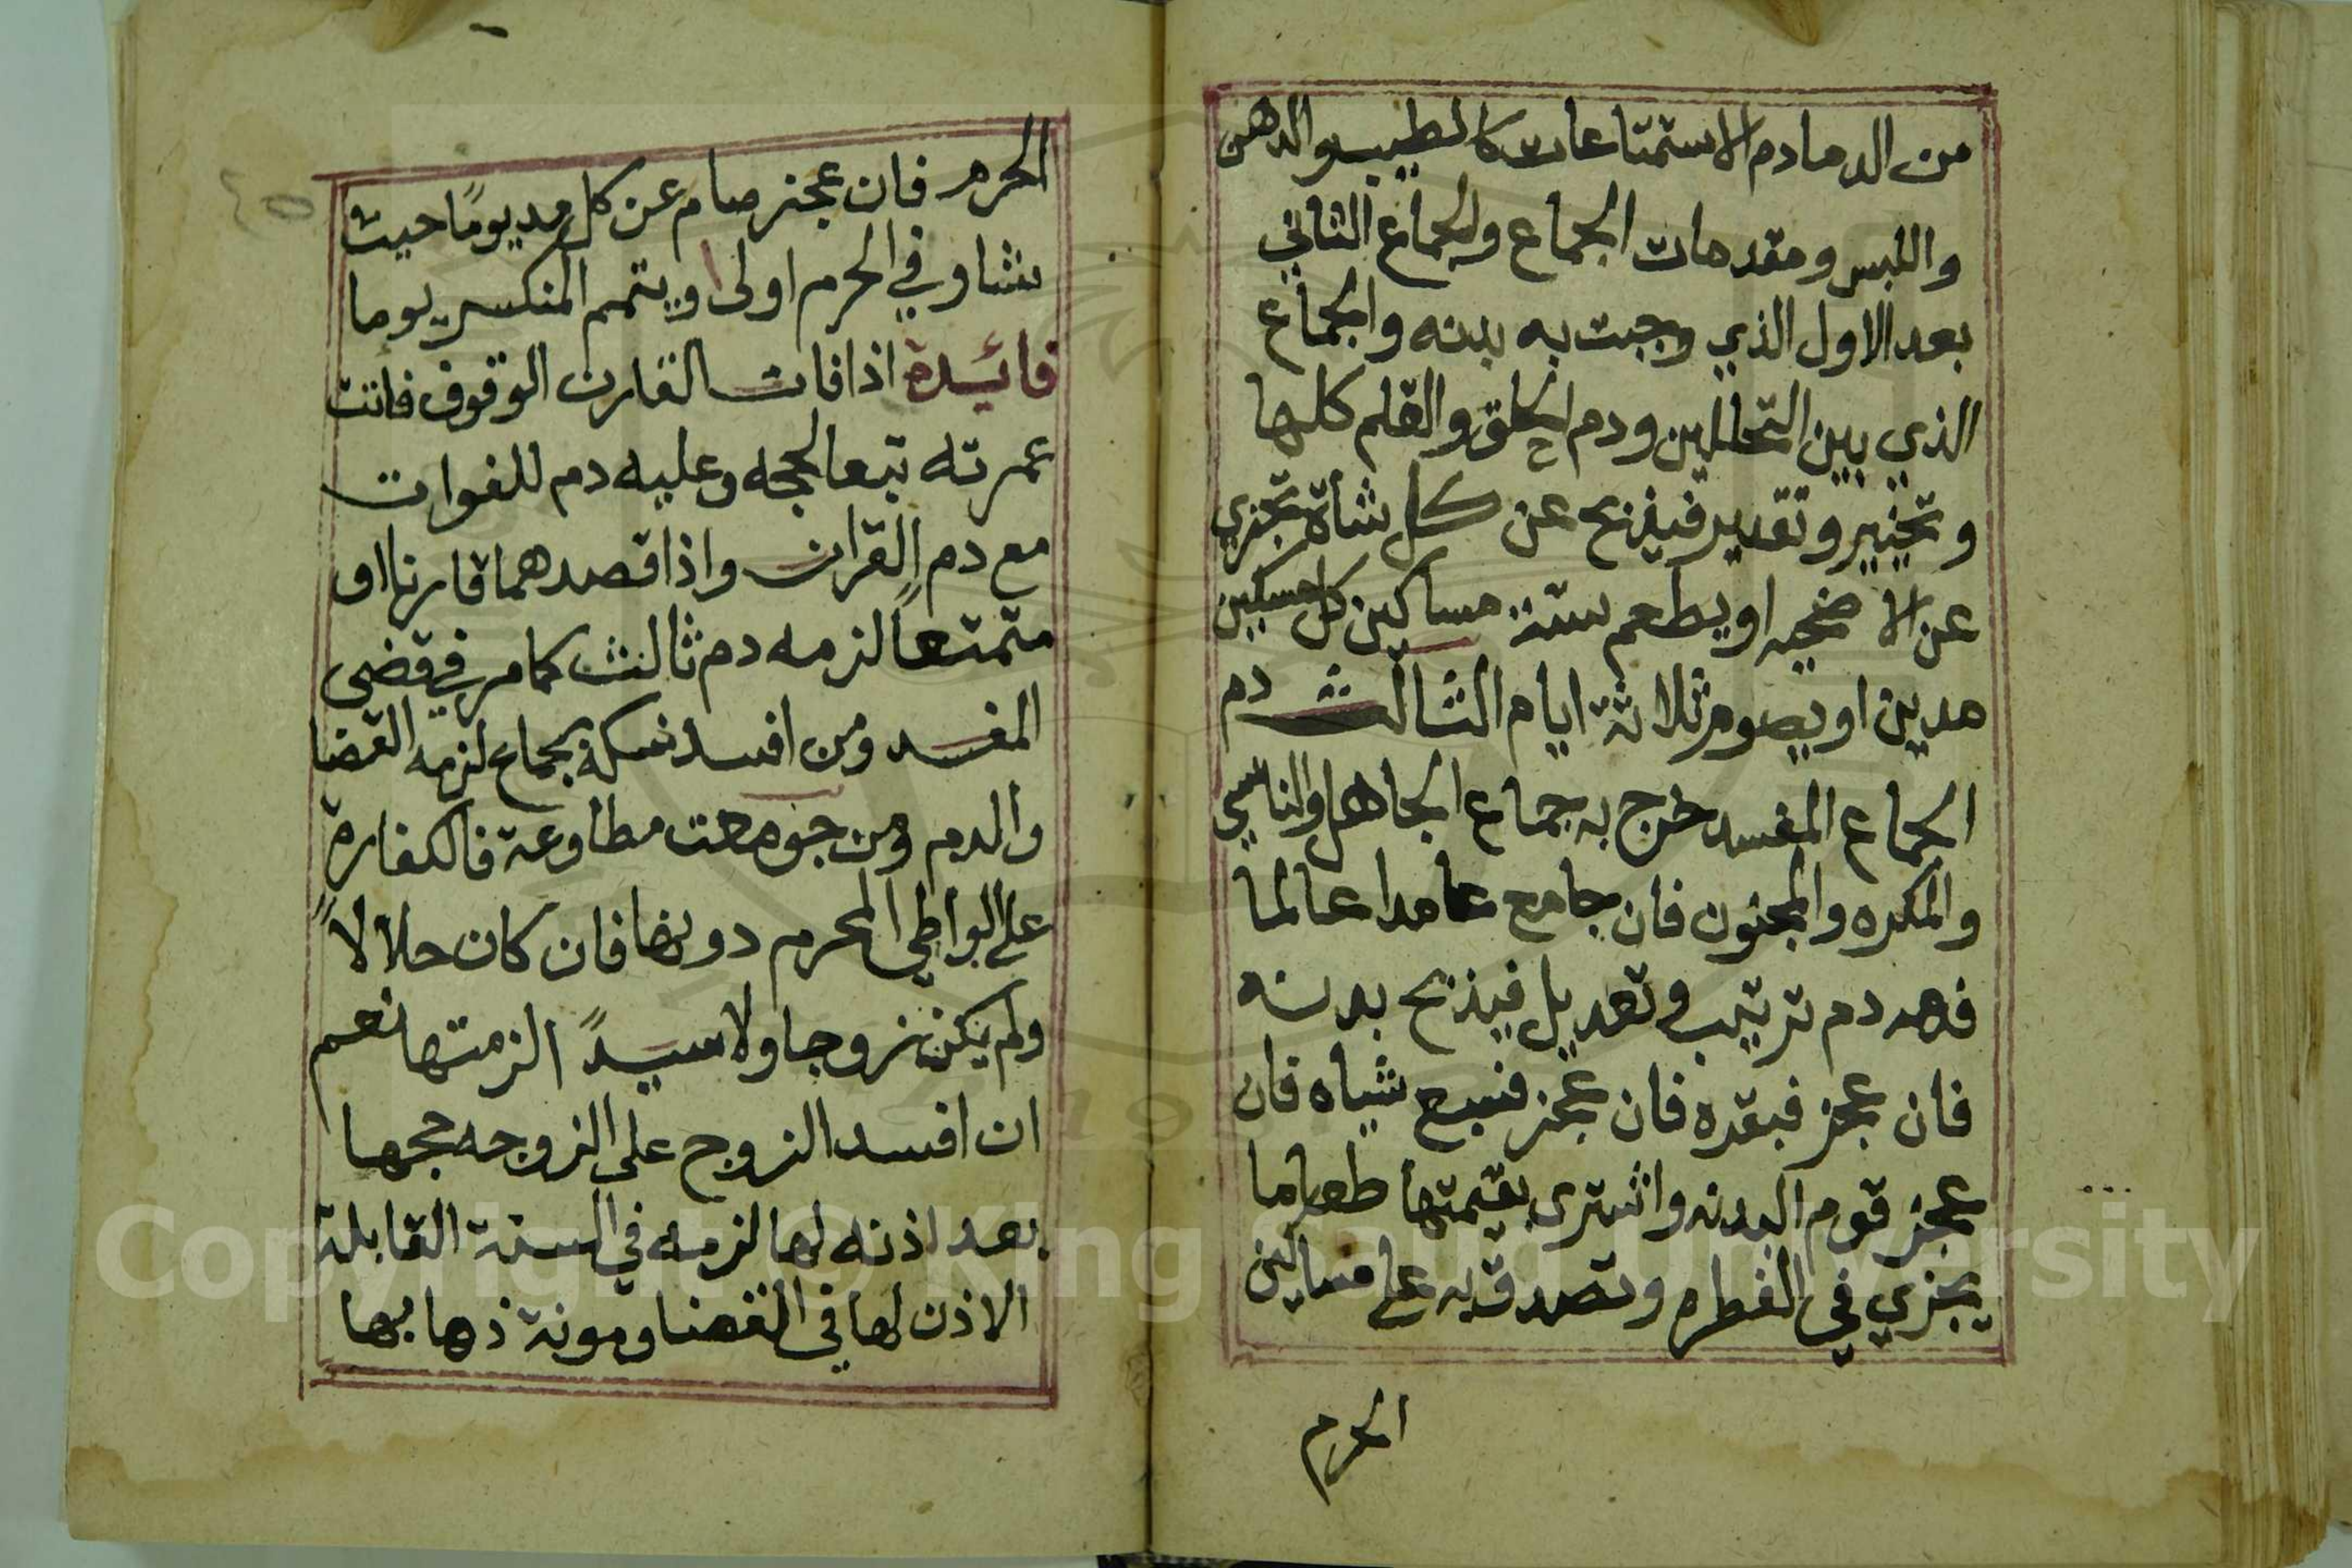 من الدما دم الاستمتاعات كالطيب والدهن
واللبس ومقدمات الجماع والجماع الثاني
بعد الاول الذي وجبت به بدنه والجماع
الذي بين التحللين ودم الحلق والقلم كلها
وتخيير وتقدير فيذبح عن كل شأة تجزي
عن الاضحيه او يطعم ستة مساكين كل مسكين
مدين او يصوم ثلاثة ايام الثالث دم
الجماع المفسد خرج به جماع الجاهل والناسي
والمكره والمجنون فان جامع عامدا عالما
فهد دم ترتيب وتعديل فيذبح بدنه
فان عجز فبقره فان عجز فسبع شياه فان
عجز قوم البدنه واشترى بقيمتها طعاما
يجزي في الفطره وتصدق به على مساكين
الحرم
الحرم فان عجز صام عن كل مد يومًا حيث
شا وفي الحرم اولى ويتمم المنكسر يوما
فائيدة اذا فات القارن الوقوف فاتت
عمرته تبعا لحجه وعليه دم للفوات
مع دم القران واذا قصدهما قارنا او
متمتعًا لزمه دم ثالث كما مر في قضى
المفسد ومن افسد نسكه بجماع لزمه القضا
والدم ومن جومعت مطاوعة فالكفارة
على الواطي المحرم دونها فان كان حلالاً
ولم يكن زوجا ولا سيدًا لزمتها نعم
ان افسد الزوج على الزوجه حجها
بعد اذنه لها لزمه في السنة القابلة
الاذن لها في القضا ومونة ذهابها
٤٥
Copyright © King Saud University